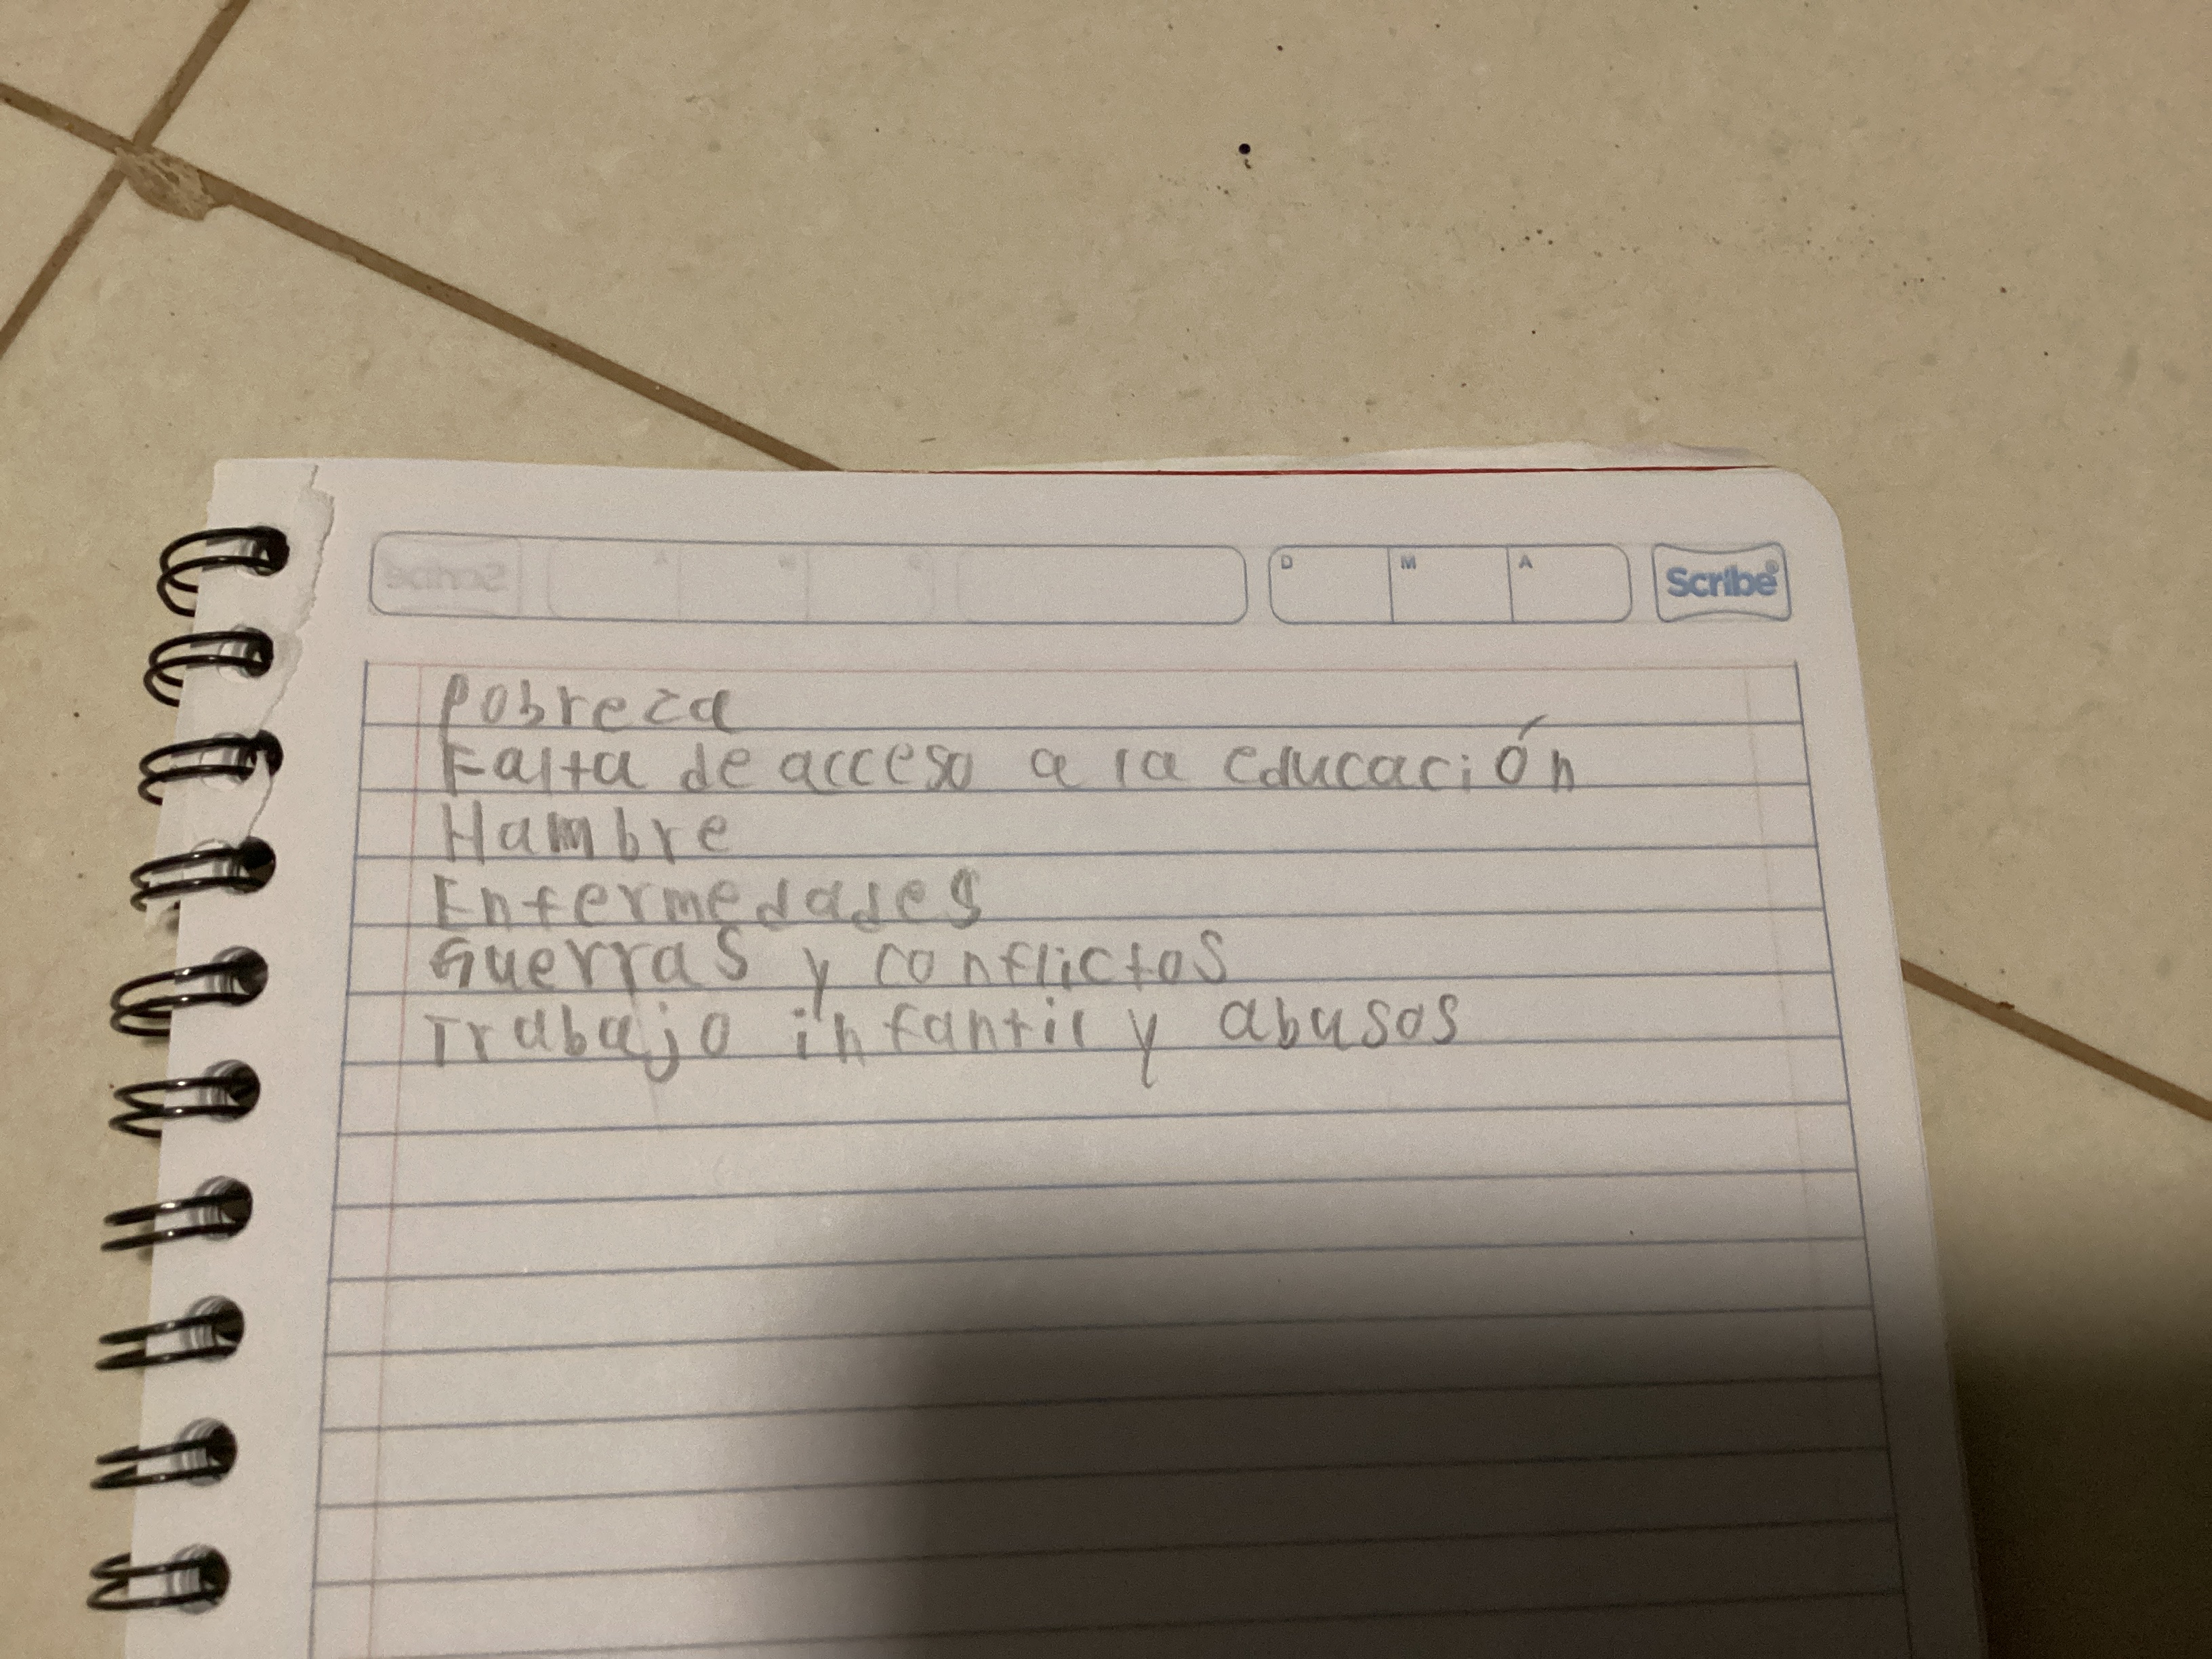 D M A Scribe®
Pobreza
Falta de acceso a la educación
Hambre
Enfermedades
Guerras y conflictos
Trabajo infantil y abusos